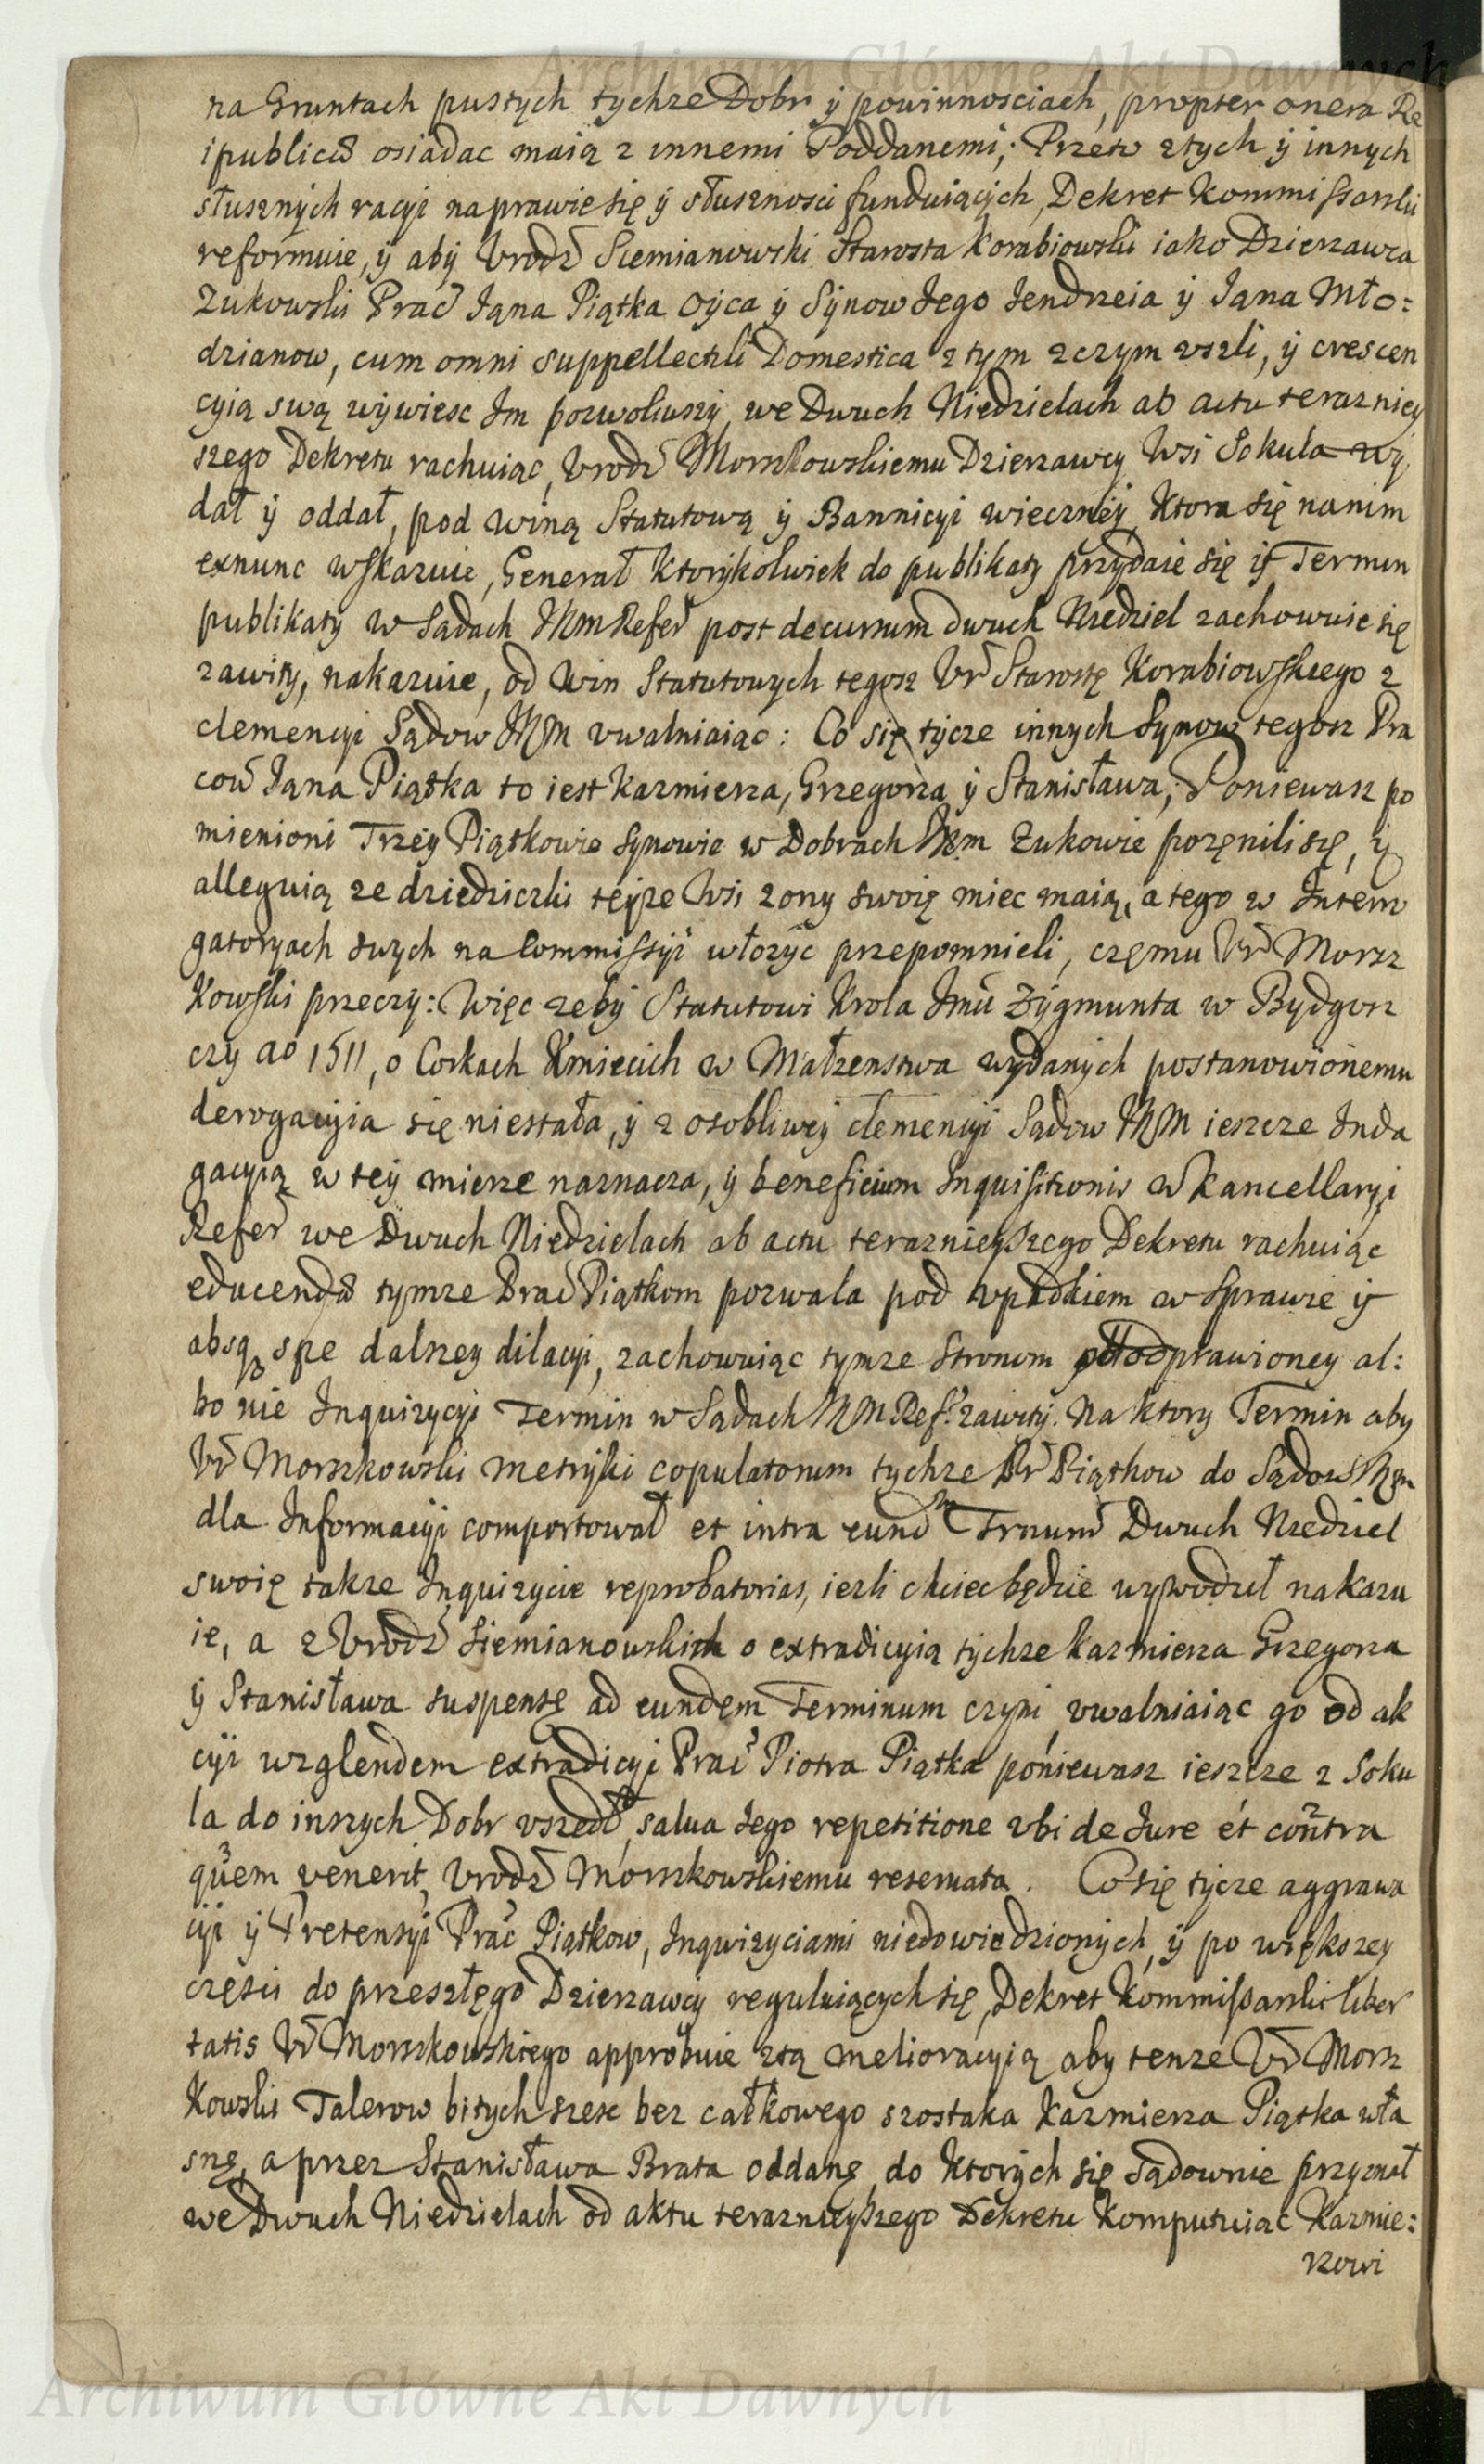 Archiwum Główne Akt Dawnych
na Gruntach pustych tychze Dobr ÿ powinnosciach, propter onera Re
ipublicæ osiadac maią z innemi Poddanemi; Przeto z tych ÿ innych
słusznych racyi na prawie się ÿ słusznosci funduiących, Dekret Kommissarski
reformuie, ÿ abÿ Vrodź Siemianowski Starosta Korabiowski iako Dzierzawca
Zukowski Prać Jąna Piątka Oyca ÿ Synow Jego Jendrzeia ÿ Jąna Mło:
dzianow, cum omni suppellectili Domestica z tym z czym vszli, ÿ crescen
cyią swą wÿwiesc Im pozwoliwszÿ, we Dwuch Niedzielach ab actu teraznieÿ
szego Dekretu rachuiąc, Vrodź Morszkowskiemu Dzierzawcy Wsi Sokula wÿ
dał ÿ oddał, pod winą Statutową ÿ Bannicyi wieczneÿ, Ktora się na nim
exnunc wskazuie, Generał Ktorÿkolwiek do publikaty przÿdaie się ÿ Termin
publikatÿ w Sądach JKM Refer post decursum dwuch Niedziel zachowuie się
zawitÿ, nakazuie, od Win Statutowych tegosz Vr Starostę Korabiowskiego z
clemencyi Sądow JKM vwalniaiąc: Co się tÿcze innych Synow tegosz Pra
cow Jąna Piątka to iest Kazmierza, Grzegorza ÿ Stanisława, Poniewasz po
mienioni Trzeÿ Piątkowie Synowie w Dobrach JKM Zukowie pozęnili się, ÿ
alleguią ze dziedziczki teÿze Wsi zony swoię miec maią, a tego w Interro
gatoryach swych na Commissÿi włozÿc przepomnieli, częmu Vr Morsz
kowski przeczÿ: Więc zebÿ Statutowi Krola Jmci Zÿgmunta w Bydgosz
czy ao 1511, o Corkach Kmiecich w Małzenstwa wydanych postanowionemu
derogacyia się niestała, ÿ z osobliweÿ clemencyi Sądow JKM ieszcze Inda
gacyią w teÿ mierze naznacza, ÿ beneficium Inquisitionis w Kancellaryi
Refer we Dwuch Niedzielach ab actu teraznieyszego Dekretu rachuiąc
educendæ tymze Prać Piątkom pozwala pod vpadkiem w sprawie ÿ
absq spe dalszey dilacyi, zachowuiąc tymze stronom odprawioney al:
bo nie Inquizycyi Termin w Sądach JKM Ref. zawitÿ. Na ktory Termin aby
Vr Morszkowski metrÿki copulatorum tychze Pr Piątkow do Sądow JKM
dla Informacyi comportował et intra eund Trnum Dwuch Niedziel
swoię takze Inquizycie reprobatorias, iezli chciec będzie wywodził nakazu
ie, a z Vrodź Siemianowskim o extradicyią tychze Kazmierza Grzegorza
ÿ Stanisława suspensę ad eundem Terminum czyni, vwalniaiąc go od ak
cyi wzglendem extradicyi Prać Piotra Piątka poniewasz ieszcze z Soku
la do inszych Dobr vszedł, salua Jego repetitione vbi de Jure et contra
quem venerit, Vrodź Morszkowskiemu reseruata. Co się tycze aggrawa
cyi ÿ Pretensyi Prać Piątkow, Inqwizyciami niedowiedzionych, ÿ po większey
częsci do przeszłęgo Dzierzawcy reguluiących się, Dekret Kommissarski liber
tatis Vr Morszkowskiego approbuie z tą melioracyią aby tenze Vr Morsz
kowski Talerow bitych szesc bez całkowego szostaka Kazmierza Piątka wła
snę, a przez Stanisława Brata oddanę, do Ktorych się sądownie przyznał
we Dwuch Niedzielach od aktu teraznieyszego Dekretu Komputuiąc Kazmie:
rzowi
Archiwum Główne Akt Dawnych